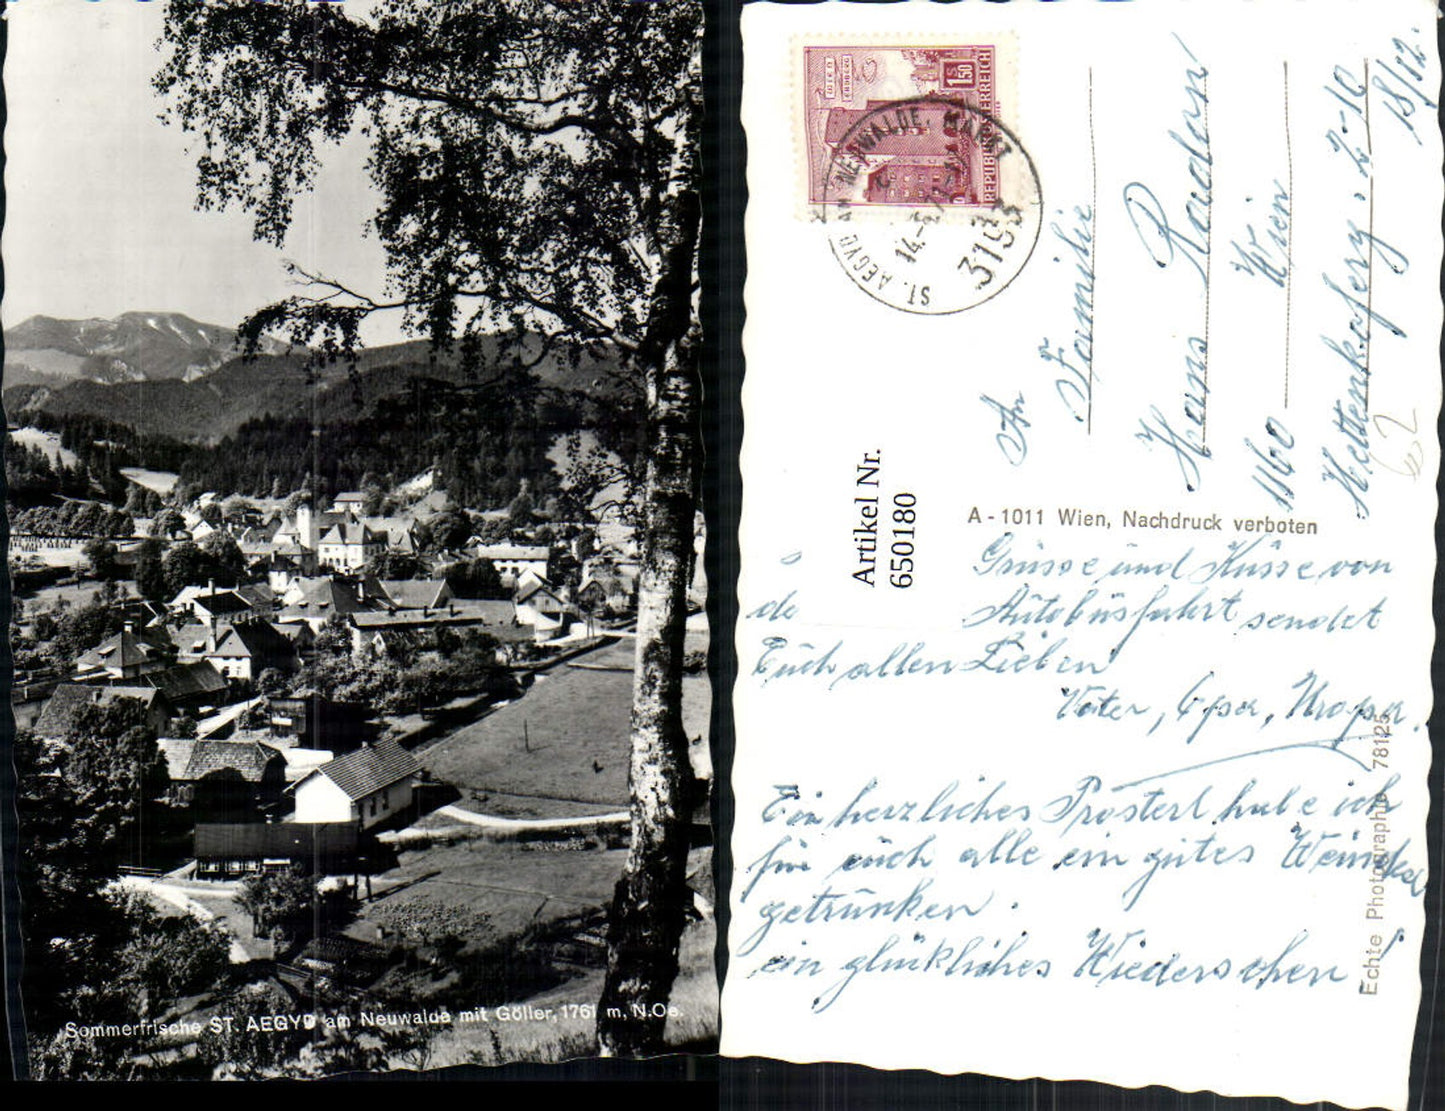 Sommerfrische ST. AEGYD am Neuwalde mit Göller, 1761 m, N.Oe.
S 1.50
REPUBLIK ÖSTERREICH
ST. AEGYD AM NEUWALDE, MARKT
3193
An
Familie
Hans
1160 Wien
Hettenkoferg. 2-10
18/32.
62
Artikel Nr.
650180
A - 1011 Wien, Nachdruck verboten
Grüsse und Küsse von
de Autobusfahrt sendet
Euch allen Lieben
Vater, Opa, Uropa.
Ein herzliches Prosterl habe ich
für euch alle ein gutes
getrunken.
ein glückliches Wiedersehen!
Echte Photographie 78125